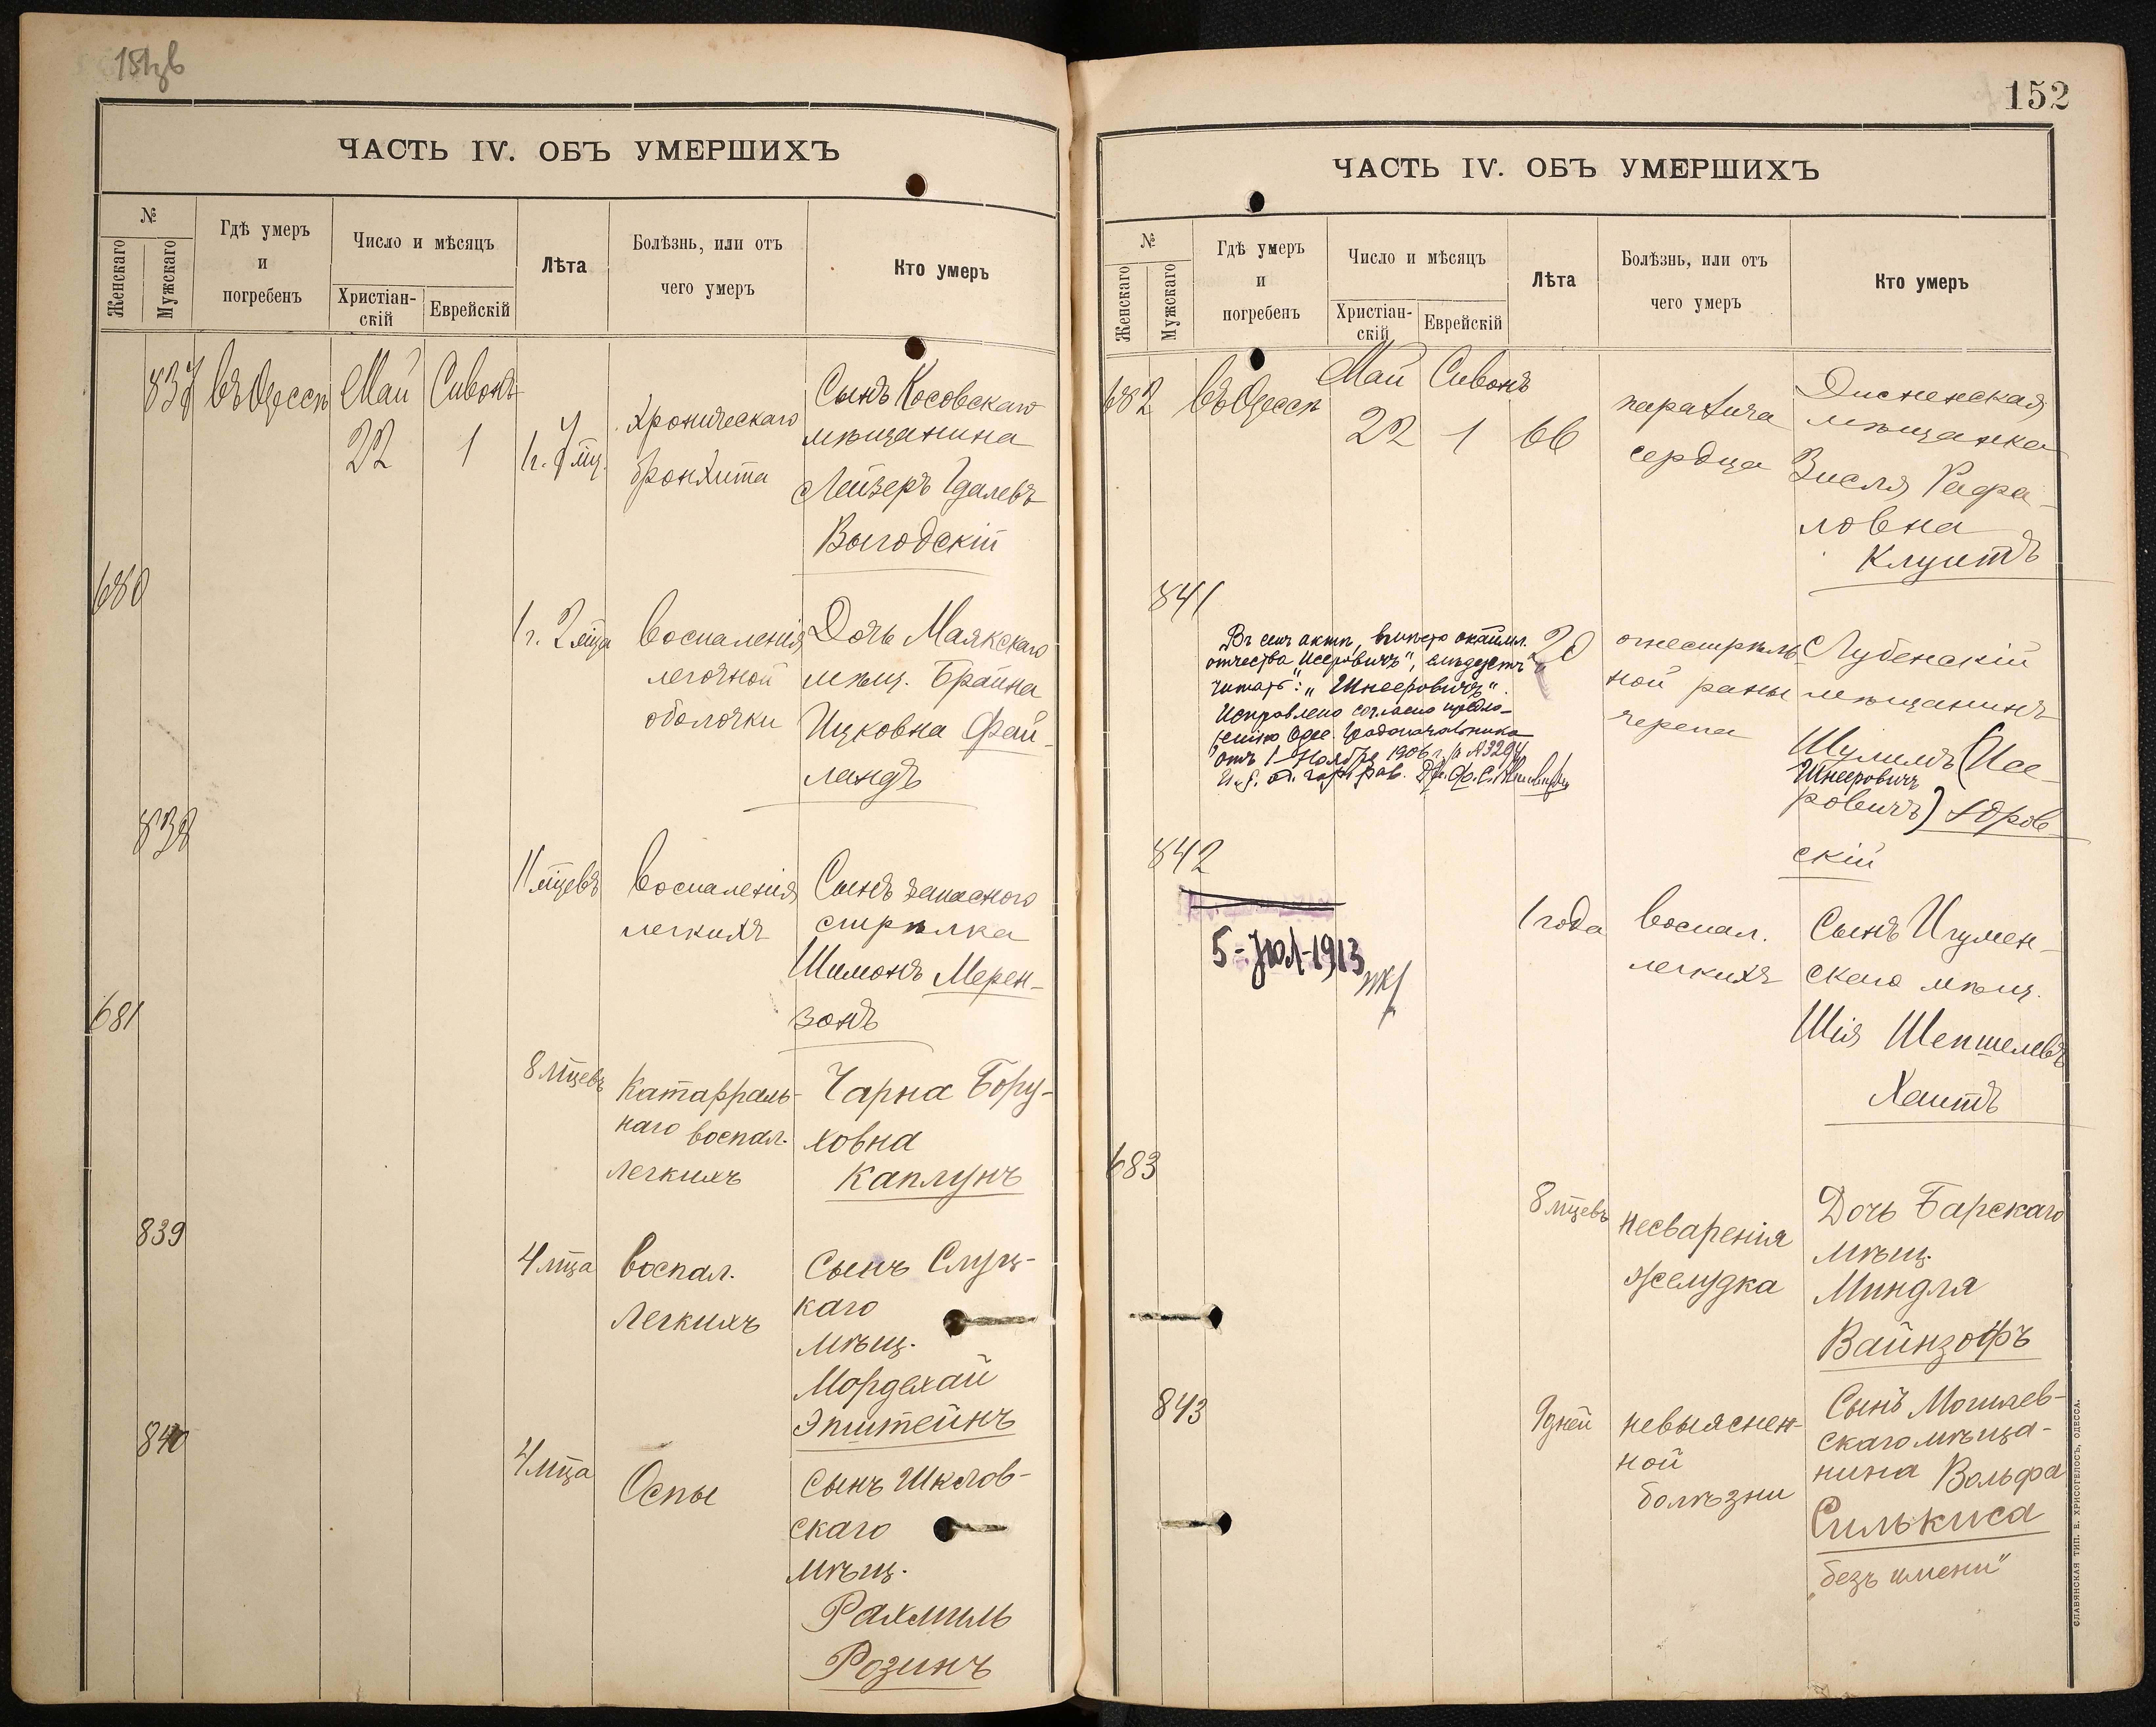 151зв
ЧАСТЬ IV. ОБЪ УМЕРШИХЪ
№
Женскаго
Мужскаго
Гдѣ умеръ
и
погребенъ
Число и мѣсяцъ
Христіан-
скій
Еврейскій
Лѣта
Болѣзнь, или отъ
чего умеръ
Кто умеръ
837
въ Одессѣ
Май
22
Сивонъ
1
хроническаго
бронхита
Сынъ Косовскаго
мѣщанина
Лейзеръ Гдалевъ
Выгодскій
680
1 г. 2 мца
воспаленія
легочной
оболочки
Дочь Маякскаго
мѣщ. Брайна
Ицковна Фай-
ландъ
838
11 мцевъ
воспаленія
легкихъ
Сынъ запаснаго
стрѣлка
Шимонъ Мерен-
зонъ
681
8 мцевъ
Катарраль-
наго воспал.
легкихъ
Чарна Бору-
ховна
Каплунъ
839
4 мца
воспал.
легкихъ
Сынъ Слуц-
каго
мѣщ.
Мордехай
Эпштейнъ
840
4 мца
Оспы
Сынъ Шклов-
скаго
мѣщ.
Рахмиль
Розинъ
152
ЧАСТЬ IV. ОБЪ УМЕРШИХЪ
№
Женскаго
Мужскаго
Гдѣ умеръ
и
погребенъ
Число и мѣсяцъ
Христіан-
скій
Еврейскій
Лѣта
Болѣзнь, или отъ
чего умеръ
Кто умеръ
682
въ Одессѣ
Май
22
Сивонъ
1
66
паралича
сердца
Дисненская
мѣщанка
Зисля Рафа-
ловна
Клуитъ
841
"Въ семъ актѣ, вмѣсто
отчества Исеровичъ", слѣдуетъ
читать: "Шнееровичъ".
Исправлено согласно предло-
женію Одес. Градоначальника
отъ 1 Ноября 1906 г. за № 3294
20
огнестрѣль-
ной раны
черепа
Лубенскій
мѣщанинъ
Шулимъ (Исе-
Шнееровичъ
ровичъ)
скій
842
5-Юл-1913
1 года
воспал.
легкихъ
Сынъ Игумен-
скаго мѣщ.
Шія Шепшелевъ
Хаитъ
683
8 мцевъ
несваренія
желудка
Дочь Барскаго
мѣщ.
Миндля
Вайнзофъ
843
9 дней
невыяснен-
ной
болѣзни
Сынъ Могилев-
скаго мѣща-
нина Вольфа
Силькиса
"безъ имени"
СЛАВЯНСКАЯ ТИП. Е. ХРИСОГЕЛОСЪ, ОДЕССА.